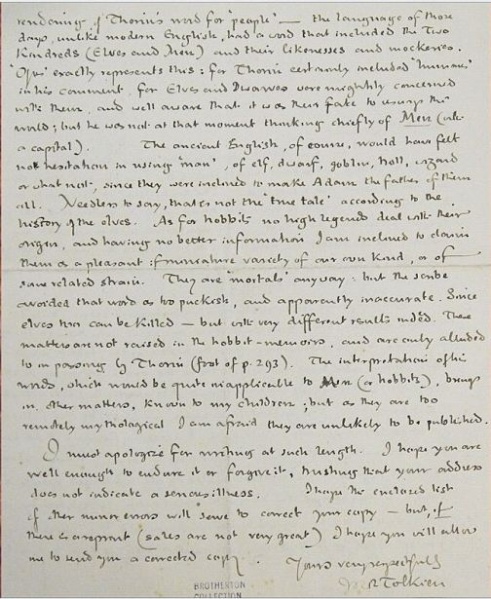 rendering of Thorin's word for 'people' — the language of those
days, unlike modern English, had a word that included the Two
Kindreds (Elves and Men) and their likenesses and mockeries.
exactly represents this: for Thorin certainly included 'humans'
in his comment, for Elves and Dwarves were mightily concerned
with them, and well aware that it was their fate to usurp the
world; but he was not at that moment thinking chiefly of Men (with
a capital). The ancient English, of course, would have felt
no hesitation in using 'man', of elf, dwarf, goblin, troll, wizard
or what not, since they were inclined to make Adam the father of them
all. Needless to say, that is not the 'true tale' according to the
history of the elves. As for hobbits no high legends deal with their
origin, and having no better information I am inclined to claim
them as a pleasant if miniature variety of our own kind, or of
some related strain. They are 'mortals' anyway: but the scribe
avoided that word as too puckish, and apparently inaccurate. Since
elves too can be killed — but with very different results indeed. These
matters are not raised in the hobbit-memoirs, and are only alluded
to in passing by Thorin (foot of p. 293). The interpretation of his
words, which would be quite inapplicable to Men (or hobbits), brings
in other matters, known to my children; but as they are too
remotely mythological I am afraid they are unlikely to be published.
I must apologize for writing at such length. I hope you are
well enough to endure it or forgive it, trusting that your address
does not indicate a serious illness. I hope the enclosed list
of other minor errors will serve to correct your copy — but, if
there is a reprint (sales are not very great) I hope you will allow
me to send you a corrected copy.
Yours very respectfully
Tolkien
BROTHERTON
COLLECTION